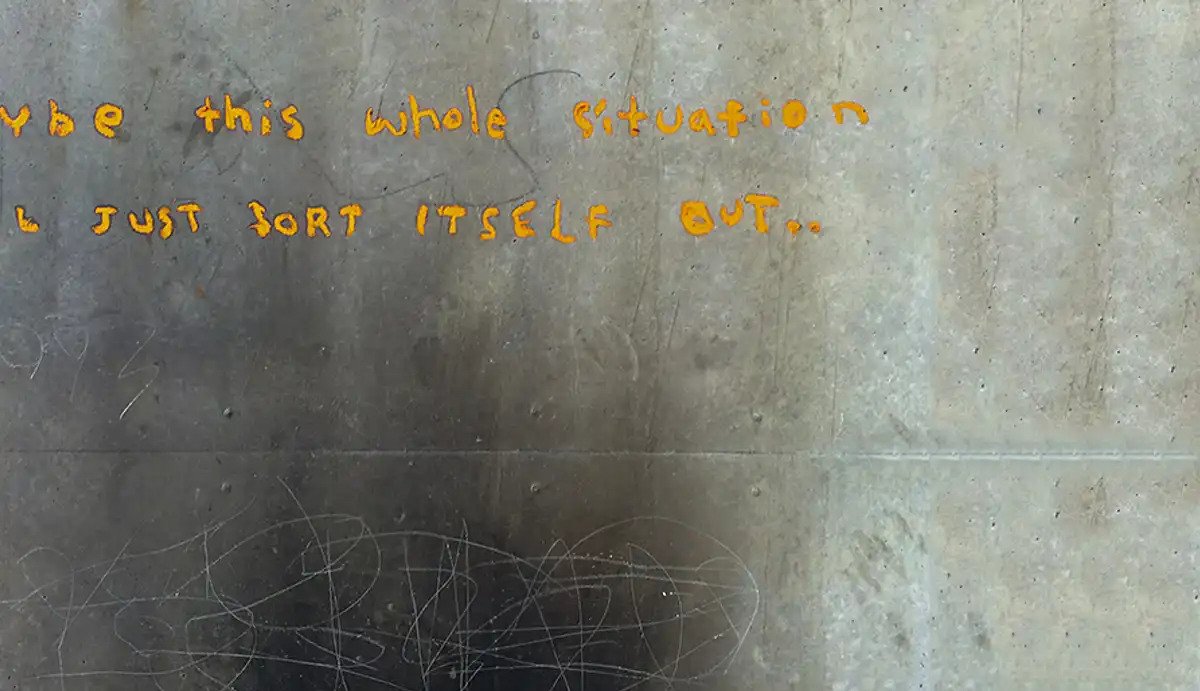 ybe this whole situation
L JUST SORT ITSELF OUT..